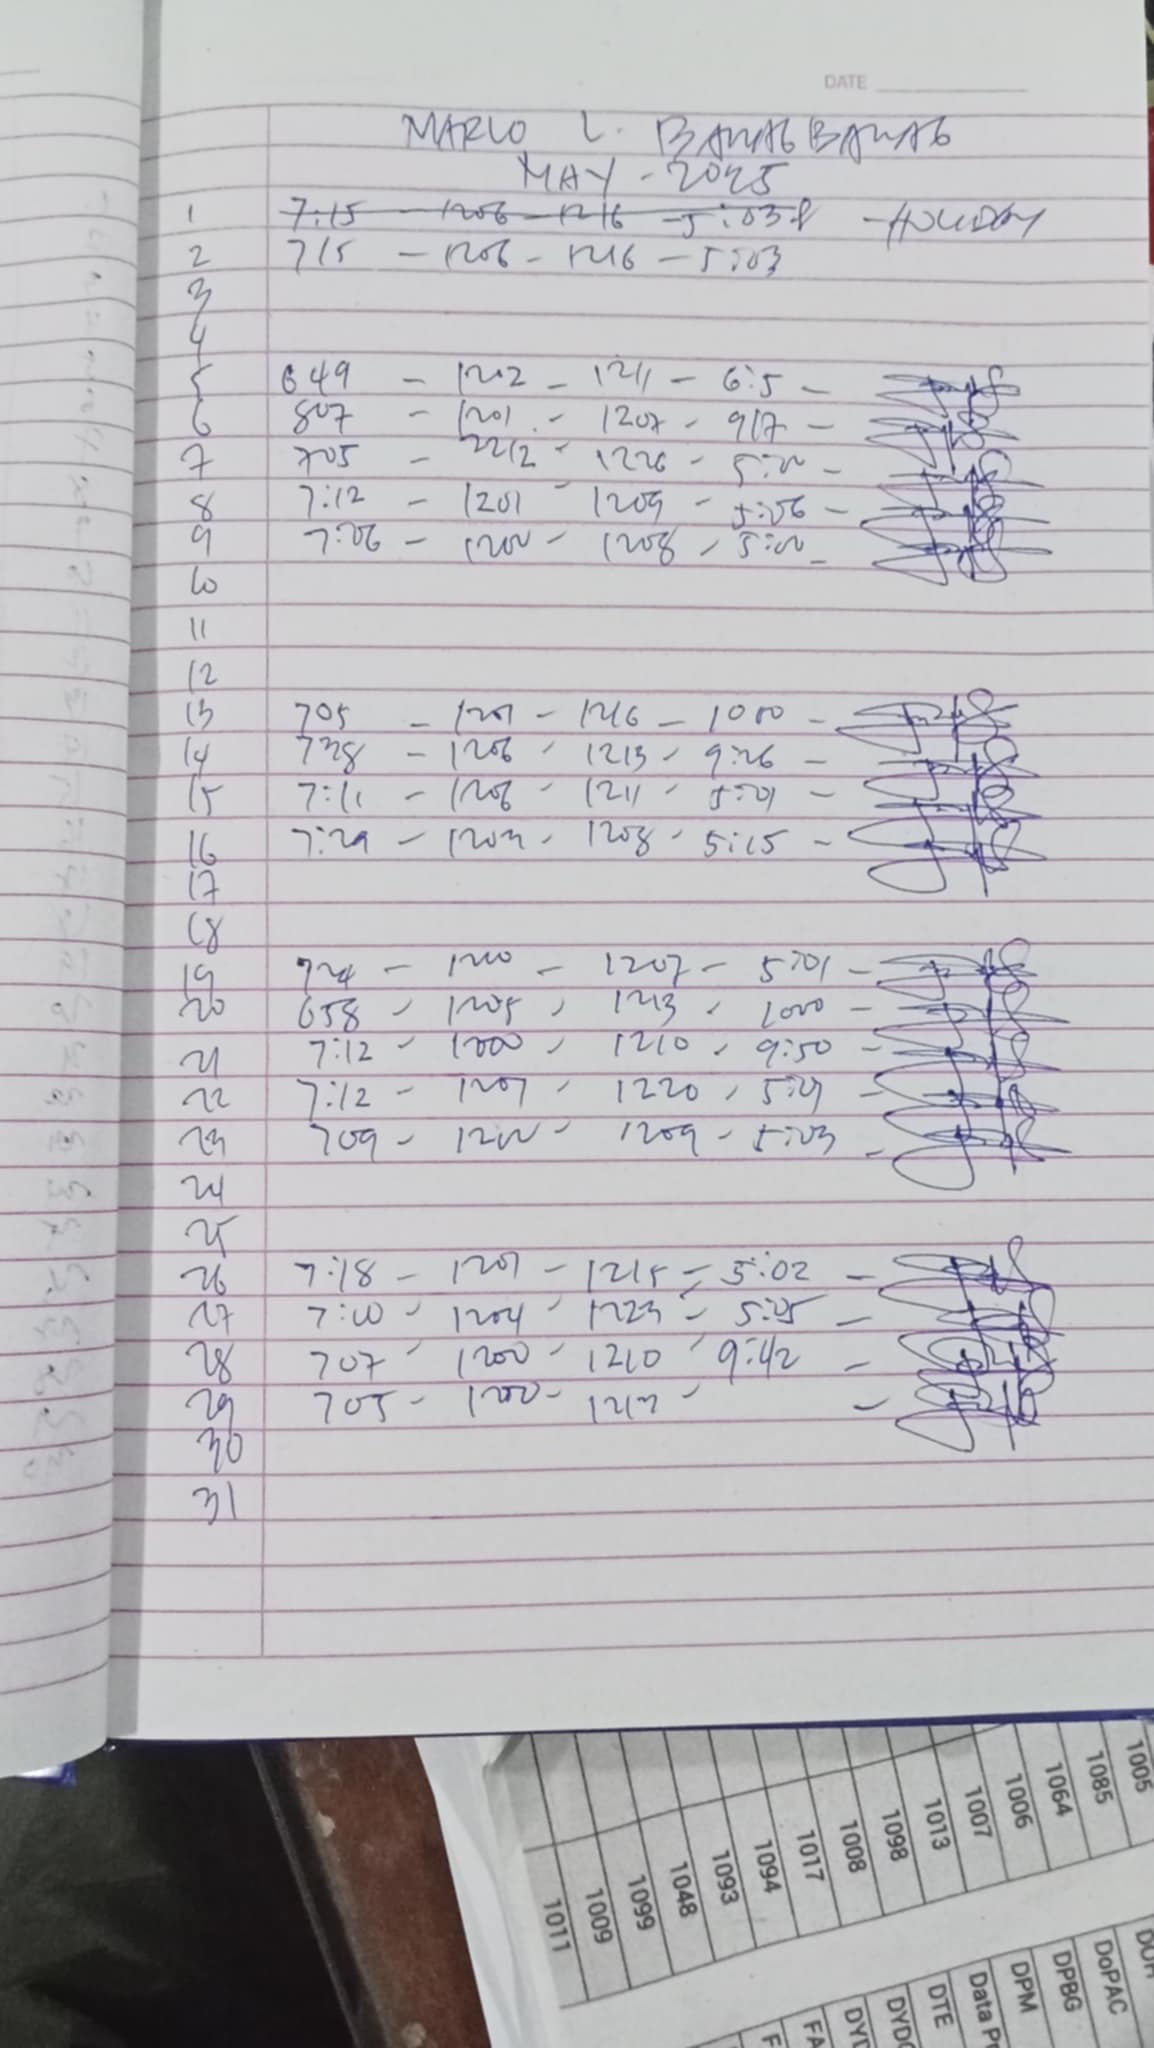 DATE
MARLO L. BANAGBANAG
MAY - 2025
1 7:15 - 1206 - 1216 - 5:03 - HOLIDAY
2 715 - 1206 - 1216 - 5:03
3
4
5 649 - 1202 - 1211 - 6:5 -
6 807 - 1201 - 1207 - 917 -
7 705 - 2212 - 1226 -
8 7:12 - 1201 1209 - 5:06 -
9 7:06 - 1200 - 1208 -
10
11
12
13 705 - 1201 - 1216 - 1000 -
14 728 - 1206 - 1213 - 9:26 -
15 7:11 - 1206 - 1211 - 5:01 -
16 7:29 - 1202 - 1208 - 5:15 -
17
18
19 724 - 1200 - 1207 - 5:01 -
20 658 - 1205 - 1213 - 1000 -
21 7:12 - 1200 - 1210 - 9:50 -
22 7:12 - 1201 - 1220 -
23 709 - 1200 - 1209 - 5:03 -
24
25
26 7:18 - 1201 - 1215 - 5:02 -
27 7:10 - 1204 - 1223 - 5:05 -
28 707 - 1200 - 1210 - 9:42 -
29 705 - 1200 - 1212 - -
30
31
1005
1085
1064
1006
1007
1013
1098
1008
1017
1094
1093
1048
1099
1009
1011
DoPAC
DPBG
DPM
Data
DTE